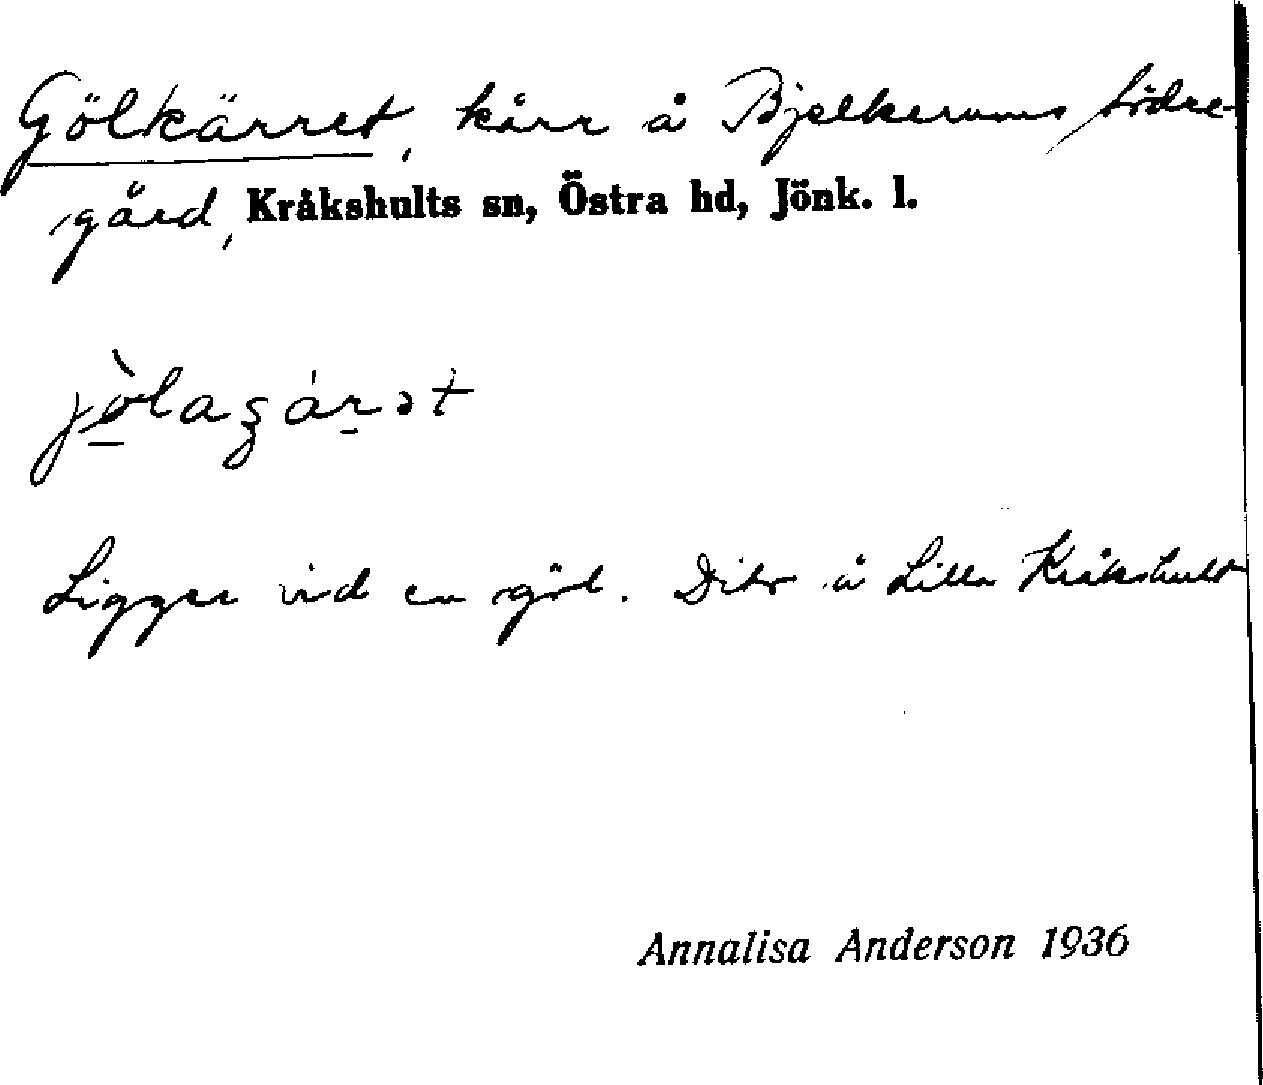 Gölkärret, kärr å Bjelkerums södre-
gård, Kråkshults sn, Östra hd, Jönk. l.
jø̀laʒár̠ət
Ligger vid en göl. Dito å Lilla Kråkshult
Annalisa Anderson 1936